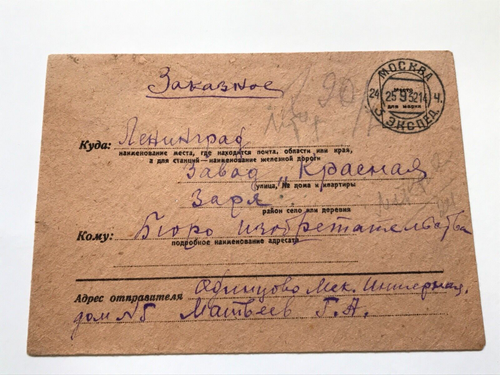 Заказное
90
МОСКВА
24 25 9 52 14 Ч.
3 ЭКСПЕД.
Куда: Ленинград
наименование места, где находится почта, области или края,
а для станций—наименование железной дороги
Завод „Красная
(улица, № дома и квартиры
Заря"
район село или деревня
Кому: Бюро изобретательства
подробное наименование адресата
Адрес отправителя Одинцово Мск. Интерная,
дом №5 Матвеев Г. А.